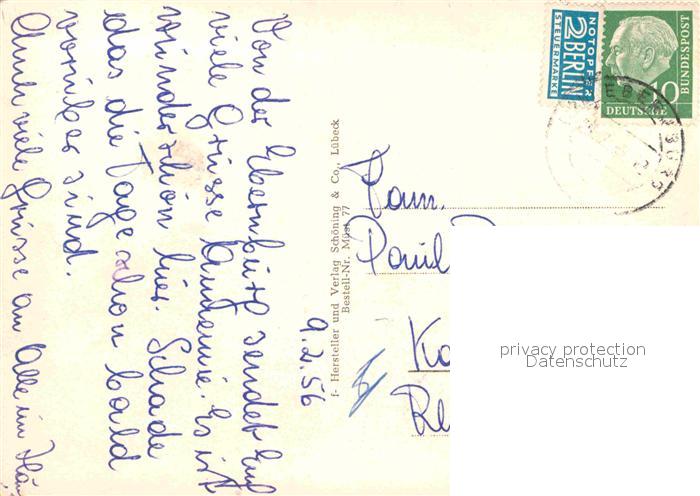 9.2.56
Von der Ebernburg sendet Euch
viele Grüsse Annemie. Es ist
wunderschön hier. Schade
das die Tage schon bald
vorüber sind.
Auch viele Grüsse an Alle im
f- Hersteller und Verlag Schöning & Co., Lübeck
Bestell-Nr. Müst 77
NOTOPFER
2 BERLIN
STEUERMARKE
10
DEUTSCHE
BUNDESPOST
Fam.
Paul
privacy protection
Datenschutz